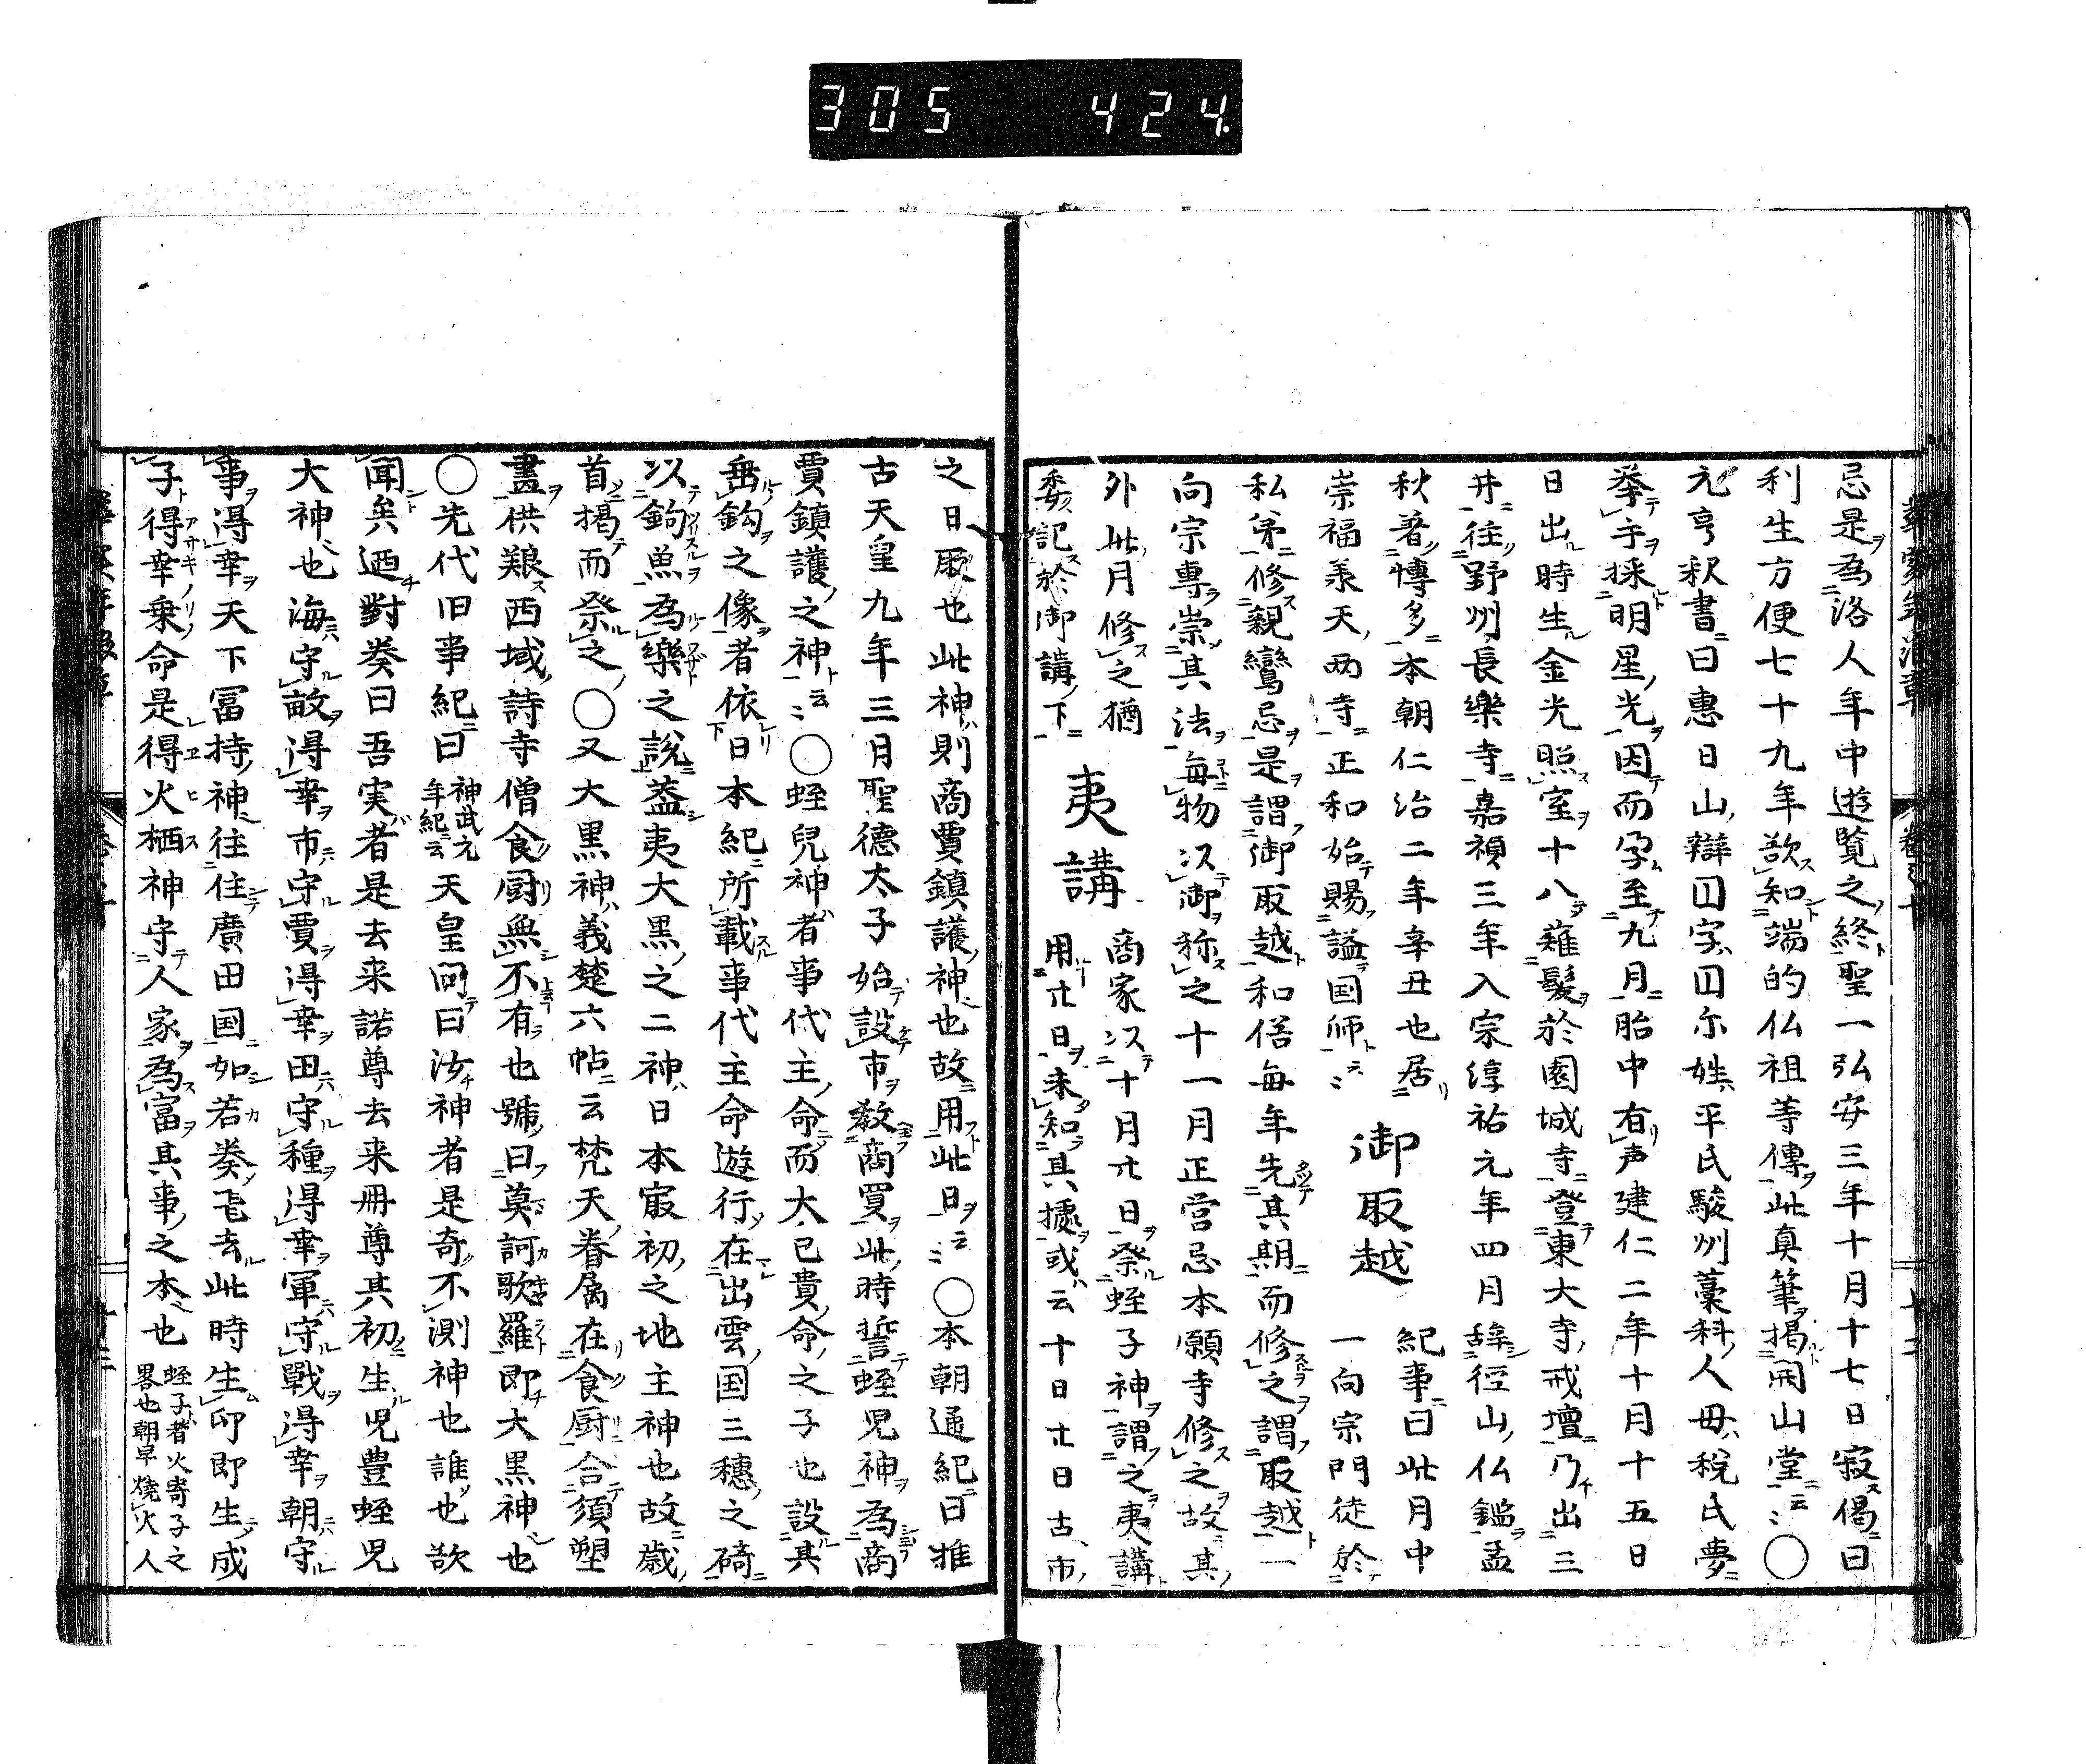 305 424.
忌是為洛人年中遊覧之終聖一弘安三年十月十七日寂偈曰
利生方便七十九年欲知端的仏祖等傳此真筆掲開山堂云〻○
元亨釈書曰惠日山辯囙字囙尓姓平氏駿州藁科人毋税氏夢
挙手採明星光因而孕至九月胎中有声建仁二年十月十五日
日出時生金光照室十八薙髪於園城寺登東大寺戒壇乃出三
井往野州長樂寺嘉禎三年入宗淳祐元年四月辞径山仏鑑孟
秋著慱多本朝仁治二年辛丑也居
崇福承天両寺正和始賜謚国师云〻
御取越
紀事曰此月中一向宗門徒於
私第修親鸞忌是謂御取越和俗毎年先其期而修之謂取越一
向宗専崇其法毎物以御称之十一月正當忌本願寺修之故其
外此月修之猶
委記於御講下
夷講
商家以十月廿日祭蛭子神謂之夷講
用廿日未知其據或云十日廿日古市
之日取也此神則商賈鎮護神也故用此日云〻○本朝通紀曰推
古天皇九年三月聖德太子始設市教商買此時誓蛭児神為商
賈鎮護之神云〻○蛭兒神者事代主命而大己貴命之子也設其
垂鈎之像者依日本紀所載事代主命遊行在出雲国三穗之碕
以鈎魚為樂之説葢夷大黒之二神日本㝡初之地主神也故歳
首掲而祭之○又大黒神義楚六帖云梵天眷属在食厨合須塑
畫供養西域諸寺僧食厨無不有也號曰莫訶歌羅即大黒神也
○先代旧事紀曰神武元年紀云天皇問曰汝神者是奇不測神也誰也欲
聞矣廼對奏曰吾実者是去来諾尊去来冊尊其初生児豊蛭児
大神也海守敵得幸市守賈得幸田守種得幸軍守戰得幸朝守
事得幸天下冨持神往往廣田国如若奏飛去此時生卬即生成
子得幸乗命是得火栖神守人家為富其事之本也蛭子者火寄子之畧也朝早焼火人